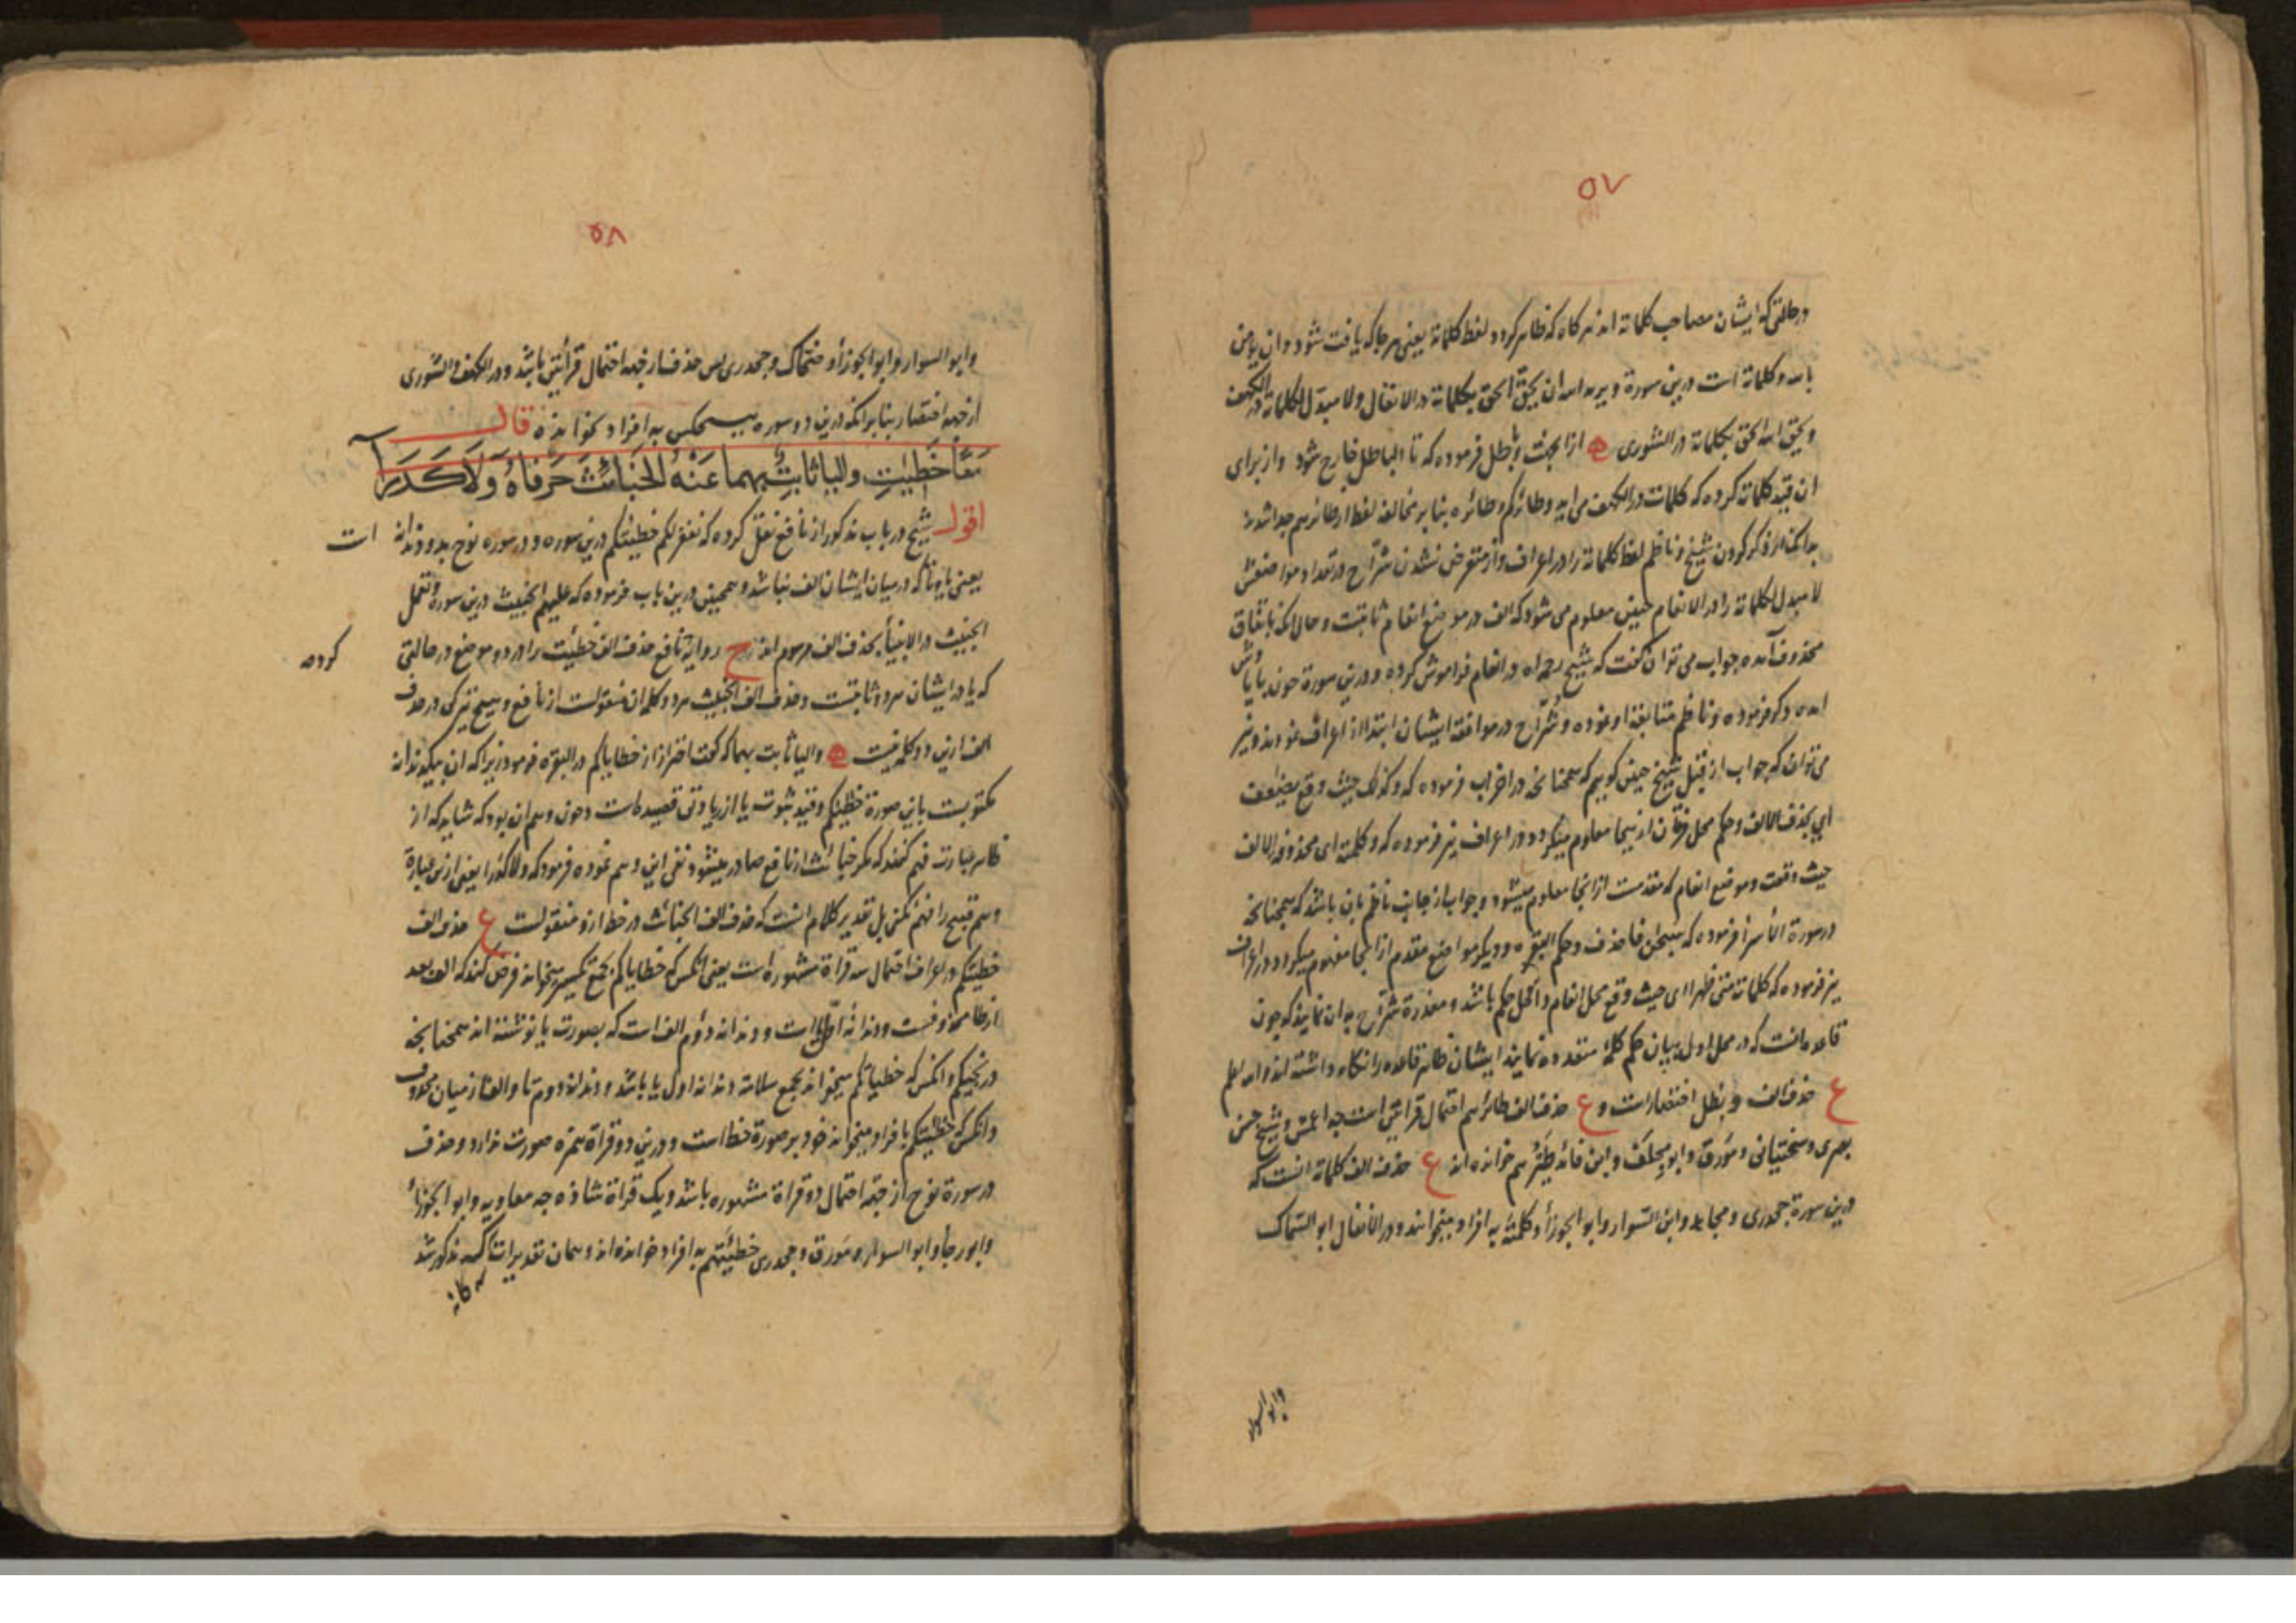 ٥٧
در حالتی که ایشان مصاحب کلماته اند هرگاه که ظاهر گردد لفظ کلماته یعنی هر جا که یافت شود و ان یؤمن
بالله و کلماته است درین سورة و یرید الله ان یحق الحق بکلماته در الانفال و لا مبدل لکلماته در الکهف
و یحق الله الحق بکلماته در الشوری ازا بحث و باطل فرموده که تا الباطل خارج شود و از برای
ان قید کلماته کرده که کلمات در الکهف می آید و طائرکم و طائره بنابر مخالف لفظ از طائرهم جدا شدند
بدانکه از ذکر کردن شیخ و ناظم لفظ کلماته را در اعراف و از متعرض نشدن شراح در تعداد مواضعش
لا مبدل لکلماته را در الانعام چنین معلوم می شود که الف در موضع انعام ثابتست و حال انکه باتفاق
محذوف آمده جواب می توان گفت که شیخ رحمه الله در انعام فراموش کرده و درین سورة چون بیادش
امده ذکر فرموده و ناظم متابعة او نموده و شراح در موافقة ایشان ابتدا از اعراف نمودند و نیز
می توان که جواب از قبل شیخ چنین گوییم که همچنانچه در احزاب فرموده که و کذلک حیث وقع یضعف
ای بحذف الالف و حکم محل فرقان از اینجا معلوم میگردد در اعراف نیز فرموده که و کلمته ای محذوفة الالف
حیث وقعت و موضع انعام که مقدمست ازانجا معلوم میشود و جواب از جانب ناظم بان باشد که همچنانچه
در سورة الأسرا فرموده که سبحان فاحذف و حکم البقره و دیگر مواضع مقدم ازانجا مفهوم میگردد در اعراف
نیز فرموده که کلمات متی ظهرا ای حیث وقع محل انعام داخل حکم باشد و معذرة شراح بدان نمایند که چون
قاعده انست که در محل اول بیان حکم کلمهٔ متعدده نمایند ایشان ظاهر قاعده را نگاه داشته اند و الله اعلم
ع حذف الف و بطل اختصارست و ع حذف الف طائرهم احتمال قرائتین است چه اعمش و شیخ حسن
بصری و سختیانی و مورق و ابو مجلف و ابن فائد طیرهم خوانده اند ع حذف الف کلماته انست که
درین سورة جحدری و مجاهد و ابن السوار و ابو الجوزأ و کلمته به افراد میخوانند و در الانفال ابو السماک
وابو السوار
٥٨
وابو السوار و ابو الجوزأ و ضحاک و جحدری پس حذف از جهة احتمال قرائتین باشد و در الکهف و الشوری
از جهة اختصار بنابر انکه درین دو سوره هیچکس به افراد نخوانده قال
مَعًا خَطِیٰتِ والیا ثابتٌ بهما عَنْهُ الخَبائِثَ حَرفاهُ وَلا کَدَرَا
اقول شیخ در باب مذکور از نافع نقل کرده که نغفر لکم خطیئتکم درین سوره و در سوره نوح بدو دندانه است
یعنی یا و تا که در میان ایشان الف نباشد و همچنین درین باب فرموده که علیهم الخبیث درین سورة و تعمل
الخبیث در الانبیأ بحذف الف مرسوم اند ح روایة نافع حذف الف خطیئت را در دو موضع در حالتی کرده
که یا در ایشان هر دو ثابتست و حذف الف الخبیث هر دو کلمه ان منقولست از نافع و هیچ تیرگی در حذف
الف ازین دو کلمه نیست والیا ثابت بهما که گفت احتراز از خطایاکم در البقره فرمود زیرا که ان بیکدندانه
مکتوبست باین صورة خطیکم و قید ثبوت یا از زیادتی قصیده است و چون وهم ان بود که شاید که از
ظاهر عبارت فهم کنند که مگر خبائث از نافع صادر میشود نفی این وهم نموده فرمود که ولا کدرا یعنی ازین عبارة
وهم قبیح را فهم نکنی بل تقدیر کلام انست که حذف الف الخبائث در خط ازو منقولست ع حذف الف
خطیئتکم در اعراف احتمال سه قراة مشهوره است یعنی انکس که خطایاکم بجمع تکسیر میخواند فرض کند که الف بعد
از طا محذوفست و دندانهٔ اول یا است و دندانه دوم الف است که بصورت یا نوشته اند همچنانچه
در نجیکم و انکس که خطیاتکم میخواند بجمع سلامة دندانه اول یا باشد و دندانه دوم تا و الف از میان محذوف
و انکس که خطیئتکم بافراد میخواند خود بر صورة خط است و درین دو قراة همزه صورت ندارد و حذف
در سورة نوح از جهة احتمال دو قراة مشهوره باشد و یک قراة شاذه چه معاویه و ابو الجوزأ
و ابو رجأ و ابو السوار و مورق و جحدری خطیئتهم به افراد خوانده اند و همان تقدیرات که مذکور شد